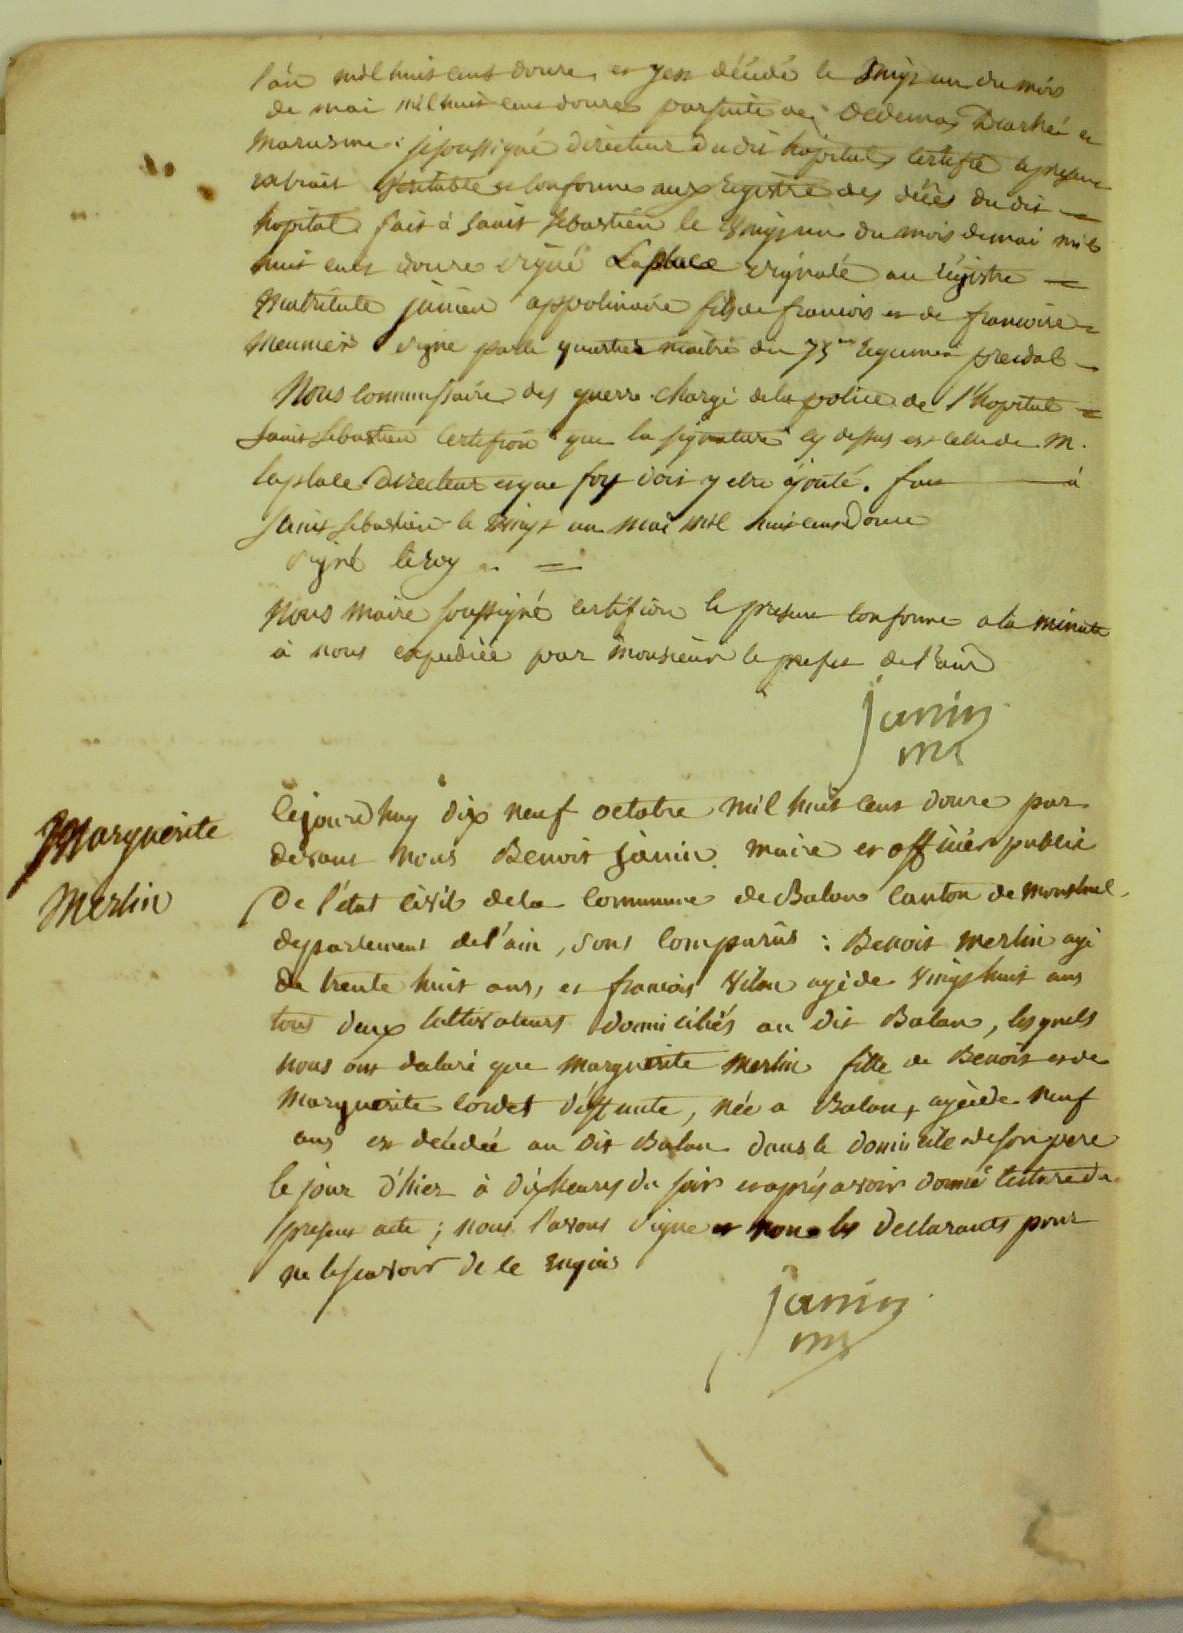 l'an mil huit cent douze et y est décédé le vingt un du mois
de mai mil huit cent douze par suite de œdemas Diarhée et
Marasme : je soussigné directeur du dit hopital certifie le present
extrait véritable et conforme aux registre des décès du dit
hopital fait à saint sebastien le vingt un du mois de mai mil
huit cent douze signé Laplace signalé au régistre
Matricule janin appolinaire fils de francois et de francoise
Meunier signe par le quartier maitre du 75me regiment
Nous commissaire des guerre chargé de la police de l'hopital
saint sebastien certifion que la signature cy dessus est celle de M.
laplace Directeur et que foy doit y etre ajouté. fait à
saint sebastien le vingt un mai mil huit cent Douze
signé leroy
Nous maire soussigné certifion le present conforme a la minute
à nous expediée par monsieur le prefet de l'ain
janin
Marguerite
Merlin
Cejourdhuy dix neuf octobre mil huit cent douze par
devant nous Benoit janin maire et officier public
De l'état civil de la commune de Balan canton de montluel
departement de l'ain, sont comparus : Benoit merlin agé
de trente huit ans, et francois agé de vingt huit ans
tous deux cultivateurs domiciliés au dit Balan, lesquels
nous ont declaré que marguerite merlin fille de Benoit et de
marguerite deffunte, née a Balan, agée de neuf
ans est décédée au dit Balan dans le domicile de son pere
le jour d'hier à dix heures du soir et aprés avoir donné lecture du
present acte ; nous l'avons signe et non les declarants pour
ne le scavoir de ce requis
janin